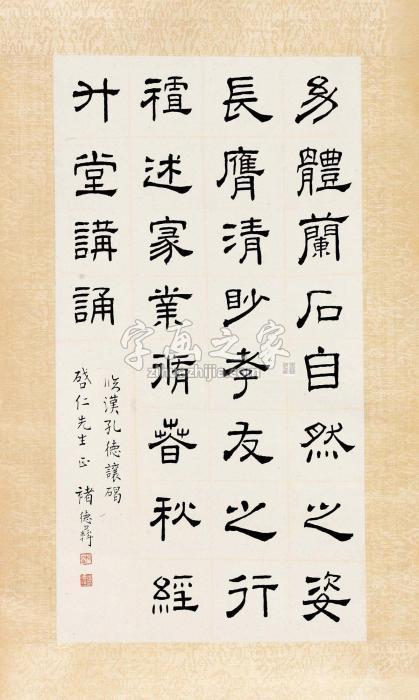 幼體蘭石自然之姿
長膺清眇孝友之行
禃述家業脩春秋經
升堂講誦
臨漢孔德讓碣
啓仁先生正 褚德彝
字画之家